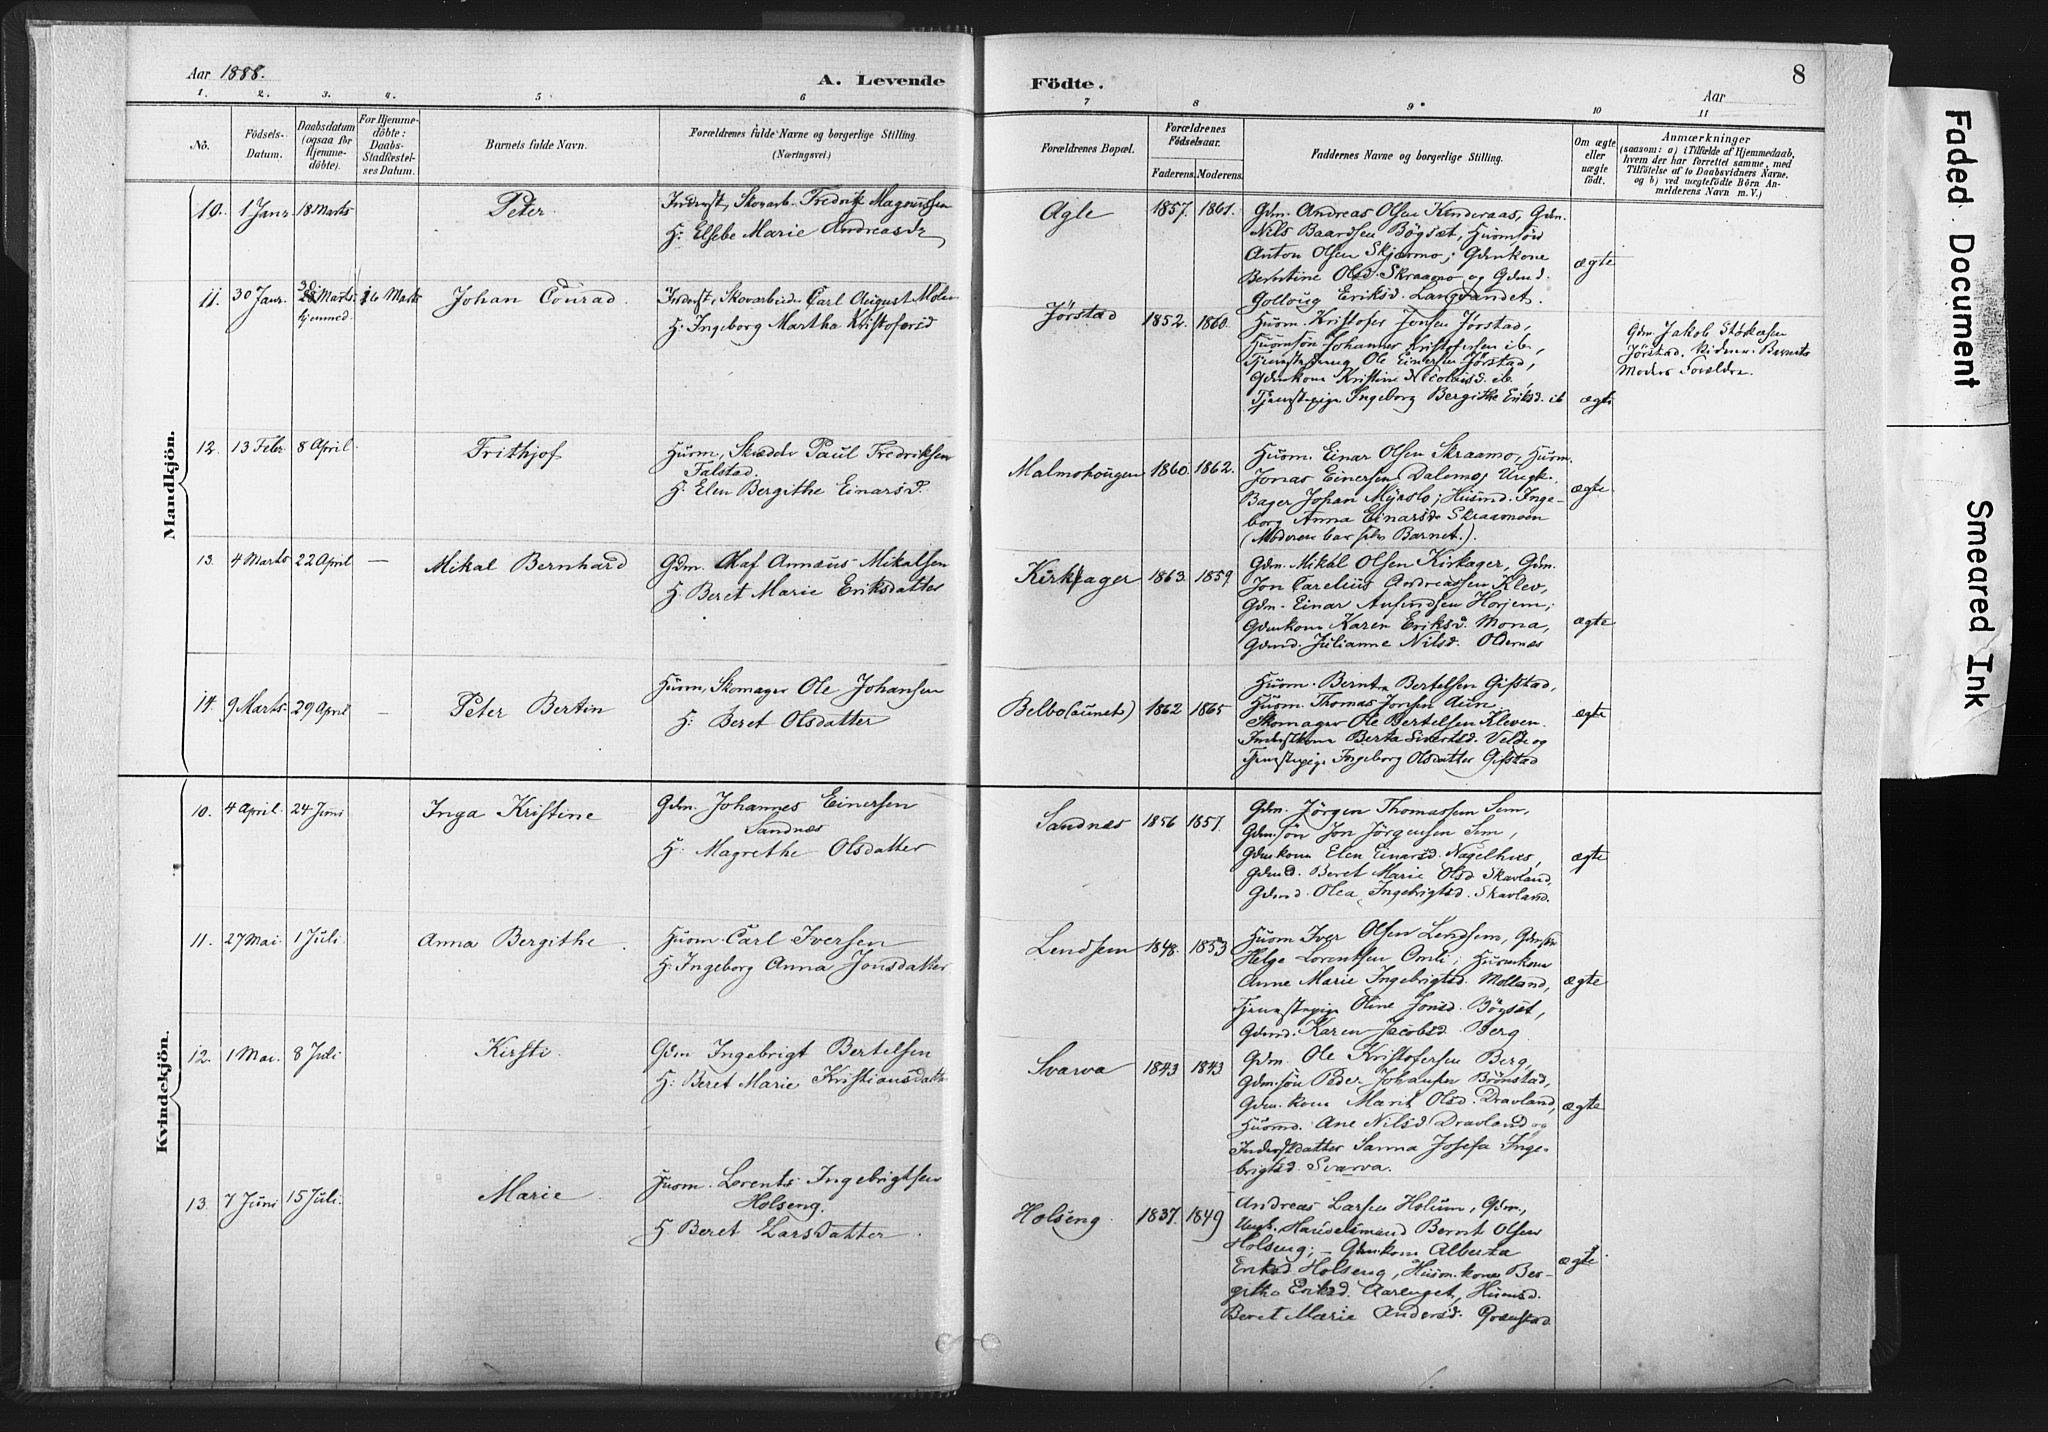 Aar 1888.
A. Levende
Födte.
8
Aar
1. 2. 3. 4. 5 6 7 8 9 10 11
No.
Födsels-
Datum.
Daabsdatum
(ogsaa for
Hjemme-
döbte).
For Hjemme-
döbte:
Daabs-
Stadfæstel-
ses Datum.
Barnets fulde Navn.
Forældrenes fulde Navne og borgerlige Stilling.
(Næringsvei.)
Forældrenes Bopæl.
Forældrenes
Födselsaar.
Faderens. Moderens.
Faddernes Navne og borgerlige Stilling.
Om ægte
eller
uægte
födt.
Anmærkninger
(saasom: a) i Tilfælde af Hjemmedaab,
hvem der har forrettet samme, med
Tilföielse af to Daabsvidners Navne,
og b) ved uægtefödte Börn An-
melderens Navn m. V.)
Mandkjön.
10. 1 Janr 18 Marts
Peter
Inderst, Skovarb. Fredrik Magnussen
H: Elsebe Marie Andreasdr
Agle
1857. 1861.
Gdm. Andreas Olsen Kinderaas, Gdm.
Nils Baardsen Bögset, Husmsön
Anton Olsen Skjærmo; Gdmkone
Berntine Olsd. Skraamo og Gdmd.
Golloug Eriksd. Langvandet.
ægte
11. 30 Janr. Marts hjemmed. 16 Marts
Johan Conrad
Inderst, Skovarbeider Carl August Molin
H: Ingeborg Martha Kristofersd
Jörstad
1852. 1860.
Husm. Kristofer Jonsen Jörstad,
Husmsön Johannes Kristofersen ib.,
Ole Einersen Jörstad,
Gdmkone Kristine Nicolaisd. ib.
Tjenestepige Ingeborg Bergithe Eriksd. ib
ægte
Gdm. Jakob
Jörstad. Vidner: Barnets
Moders Forældre.
12. 13 Febr 8 April
Frithjof
Husm, Skrædder Paul Fredriksen
Falstad.
H. Elen Bergithe Einarsd.
Malmohaugen
1860. 1862.
Husm. Einar Olsen Skraamo, Husm.
Jonas Einersen Dalemo; Ungk.
Bager Johan Myaslo; Husmd. Inge-
borg Anna Einarsdr Skraamoen
(Moderen bar selv Barnet.).
ægte
13. 4 Marts 22 April —
Mikal Bernhard
Gdm. Olaf Annæus Mikalsen
H. Beret Marie Eriksdatter
Kirkager
1863. 1859.
Gdm. Mikal Olsen Kirkager, Gdm.
Jon Carelius Andreassen Klev,
Gdm. Einar Horjem;
Gdmkone Karen Eriksd. Mona,
Gdmd. Julianne Nilsd. Oldernæs
ægte
14. 9 Marts 29 April —
Peter Bertin
Husm, Skomager Ole Johansen
H: Beret Olsdatter
Belbo(aunet)
1862 1865
Husm. Bernt Bertelsen Gifstad,
Husm. Thomas Jonsen Aun
Skomager Ole Bertelsen Kleven.
Inderstkone Berta Sivertsd. Velde og
Tjenestepige Ingeborg Olsdatter Gifstad
ægte
Kvindekjön.
10. 4 April. 24 Juni
Inga Kristine
Gdm. Johannes Einersen
Sandnæs
H: Magrethe Olsdatter
Sandnæs
1856 1857.
Gdm. Jörgen Thomassen Sem,
Gdmsön Jon Jörgensen Sem,
Gdmkone Elen Einarsd. Nagelhus,
Gdmd. Beret Marie Olsd Skavland,
Gdmd. Olea Ingebrigtsd. Skavland.
ægte
11. 27 Mai. 1 Juli
Anna Bergithe
Husm Carl Iversen
H: Ingeborg Anna Jonsdatter
Lendsem
1848. 1853
Husm Iver Olsen Lendsem, Gdmsön
Helge Lorentsen Omli; Husmkone
Anne Marie Ingebrigtsd. Molland,
Tjenestepige Oline Jonsd. Bögset,
Gdmd. Karen Jacobsd. Berg
ægte
12. 1 Mai. 8 Juli
Kirsti.
Gdm Ingebrigt Bertelsen
H: Beret Marie Kristiansdatter
Svarva
1843 1843
Gdm. Ole Kristofersen Berg,
Gdm.sön Peder Johansen Brönstad,
Gdm.kone Marit Olsd. Dravland,
Husmd. Ane Nilsd Dravland og
Inderstdatter Sanna Josefa Inge-
brigtsd. Svarva.
ægte
13. 7 Juni 15 Juli.
Marie
Husm. Lorents Ingebrigtsen
Holseng.
H. Beret Larsdatter
Holseng
1837. 1849
Andreas Larsen Holum, Gdm,
Ungk. Handelsmand Bernt Olsen
Holseng; Gdmkone Alberta
Eriksd Holseng, Husm.kone Ber-
githa Eriksd. Aarenget, Husmsd.
Beret Marie Andersd.
ægte
Faded Document
Smeared Ink